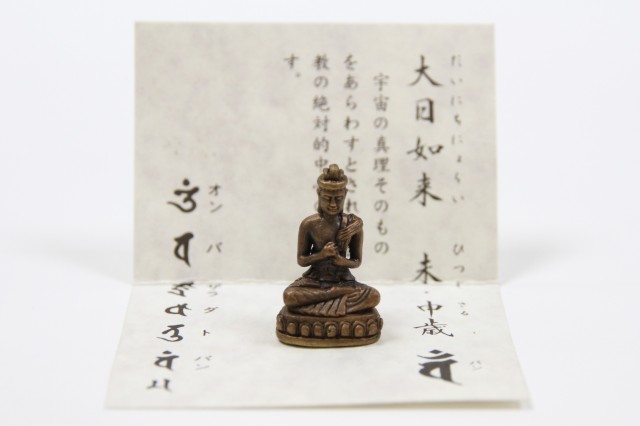 だいにちにょらい
大日如来 未・申歳
宇宙の真理そのもの
をあらわすとされ
教の絶対的中
す。
オン バ ザラ ダト バン